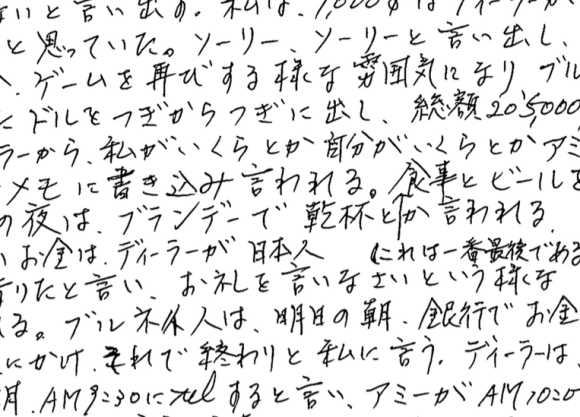 ないと言い出す。私は、9,000$はディーラーが
と思っていた。ソーリー、ソーリーと言い出し、
、ゲームを再びする様な雰囲気になり ブル
ドルをつぎからつぎに出し、総額205,000
ラーから、私がいくらとか自分がいくらとかアミ
メモに書き込み言われる。食事とビールを
の夜は、ブランデーで乾杯とか言われる。
お金は、ディーラーが日本人 (これは一番最後である
りたと言い、お礼を言いなさいという様な
る。ブルネイ人は、明日の朝、銀行でお金
にかけ、それで終わりと私に言う。ディーラーは、
AM9:30にtelすると言い、アミーがAM10:20